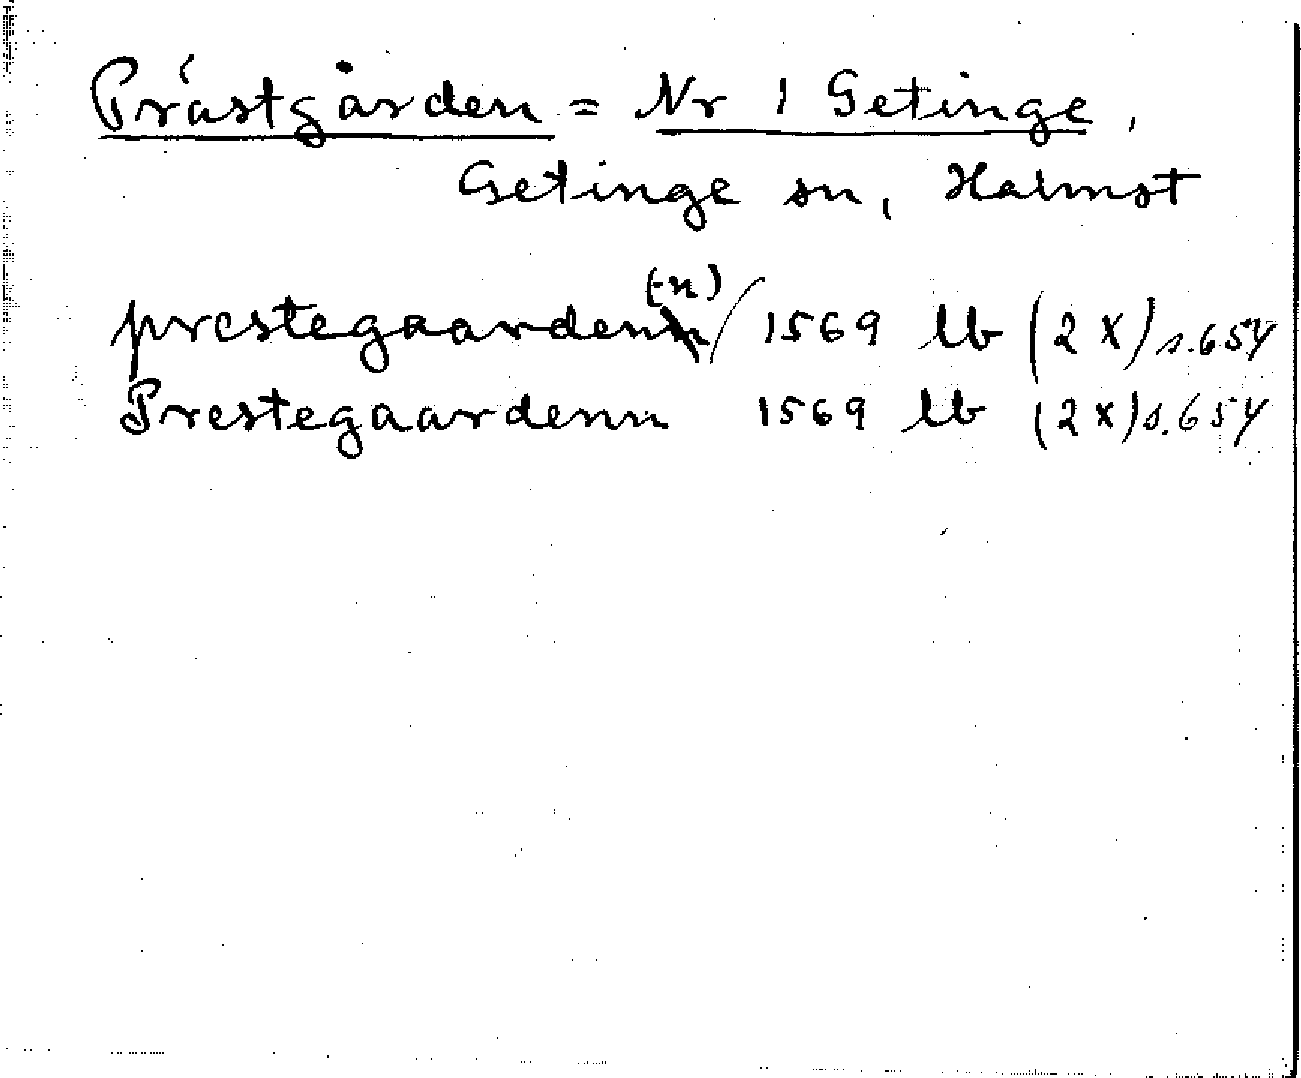 Prästgården = Nr 1 Getinge,
Getinge sn, Halmst
prestegaarden(-n) / 1569 lb (2 x) s. 654
Prestegaardenn 1569 lb (2 x) s. 654